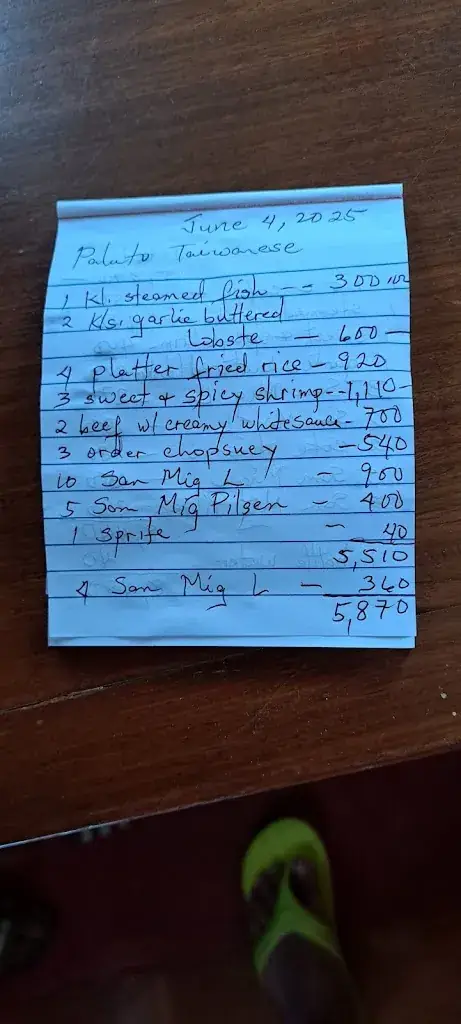 June 4, 2025
Paluto Taiwanese
1 kl. steamed fish -- 300
2 kls. garlic buttered
Lobste — 600 —
4 platter fried rice - 920
3 sweet & spicy shrimp--1,110-
2 beef w/ creamy whitesauce- 700
3 order chopsuey - 540
10 San Mig L - 900
5 San Mig Pilsen - 400
1 sprite - 40
5,510
4 San Mig L - 360
5,870